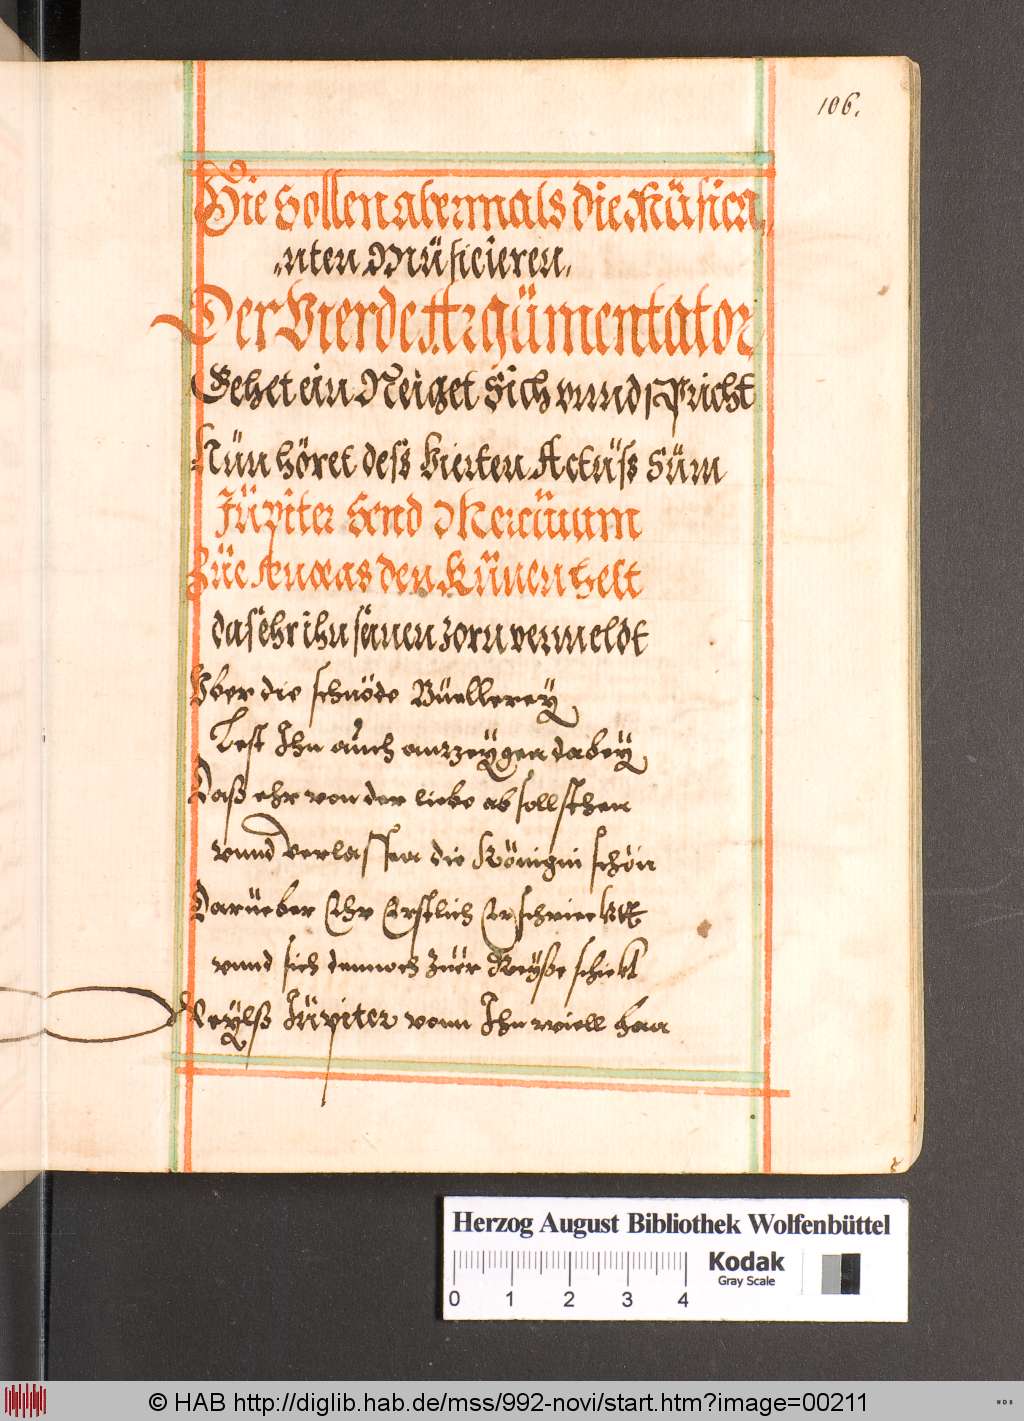 106.
Hie sollen abermals die Müsica„
„nten Müsicieren.
Der Vierde Argümentator
Gehet ein Neiget sich vnnd spricht
Nün höret dess Vierten Actüss Süm
Jüpiter send Mercüuum
Züe Aenaeas den Künen helt
das ehr ihn seinen zorn vermeldt
Vber die schnöde Buellerey
Lest Ihn auch anzzeygen dabey
Daß ehr von der liebe ab soll sthen
vnnd verlassen die Königin schön
Darüeber Ehr Erstlich Erschrickt
vnnd sich dennoch züer Reyße schickt
Weylß Jüpiter vonn Ihn wiell haa
Herzog August Bibliothek Wolfenbüttel
Kodak
Gray Scale
0 1 2 3 4
© HAB http://diglib.hab.de/mss/992-novi/start.htm?image=00211